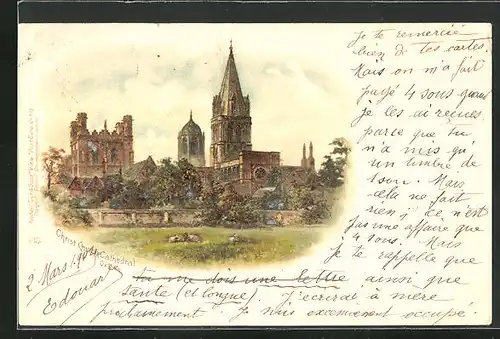 Je te remercie
bien de tes cartes.
Mais on m'a fait
payé 4 sous quand
je les ai reçues
parce que tu
n'a mis qu'
un timbre de
1 sou. Mais
cela ne fait
rien; ce n'est
pas une affaire que
4 sous. Mais
je te rappelle que
tu me dois une lettre ainsi que
tante (et longue). J'écrirai à mère
prochainement Je suis excessivement occupé.
Christ Church Cathedral
2 Mars 1900
Edouard